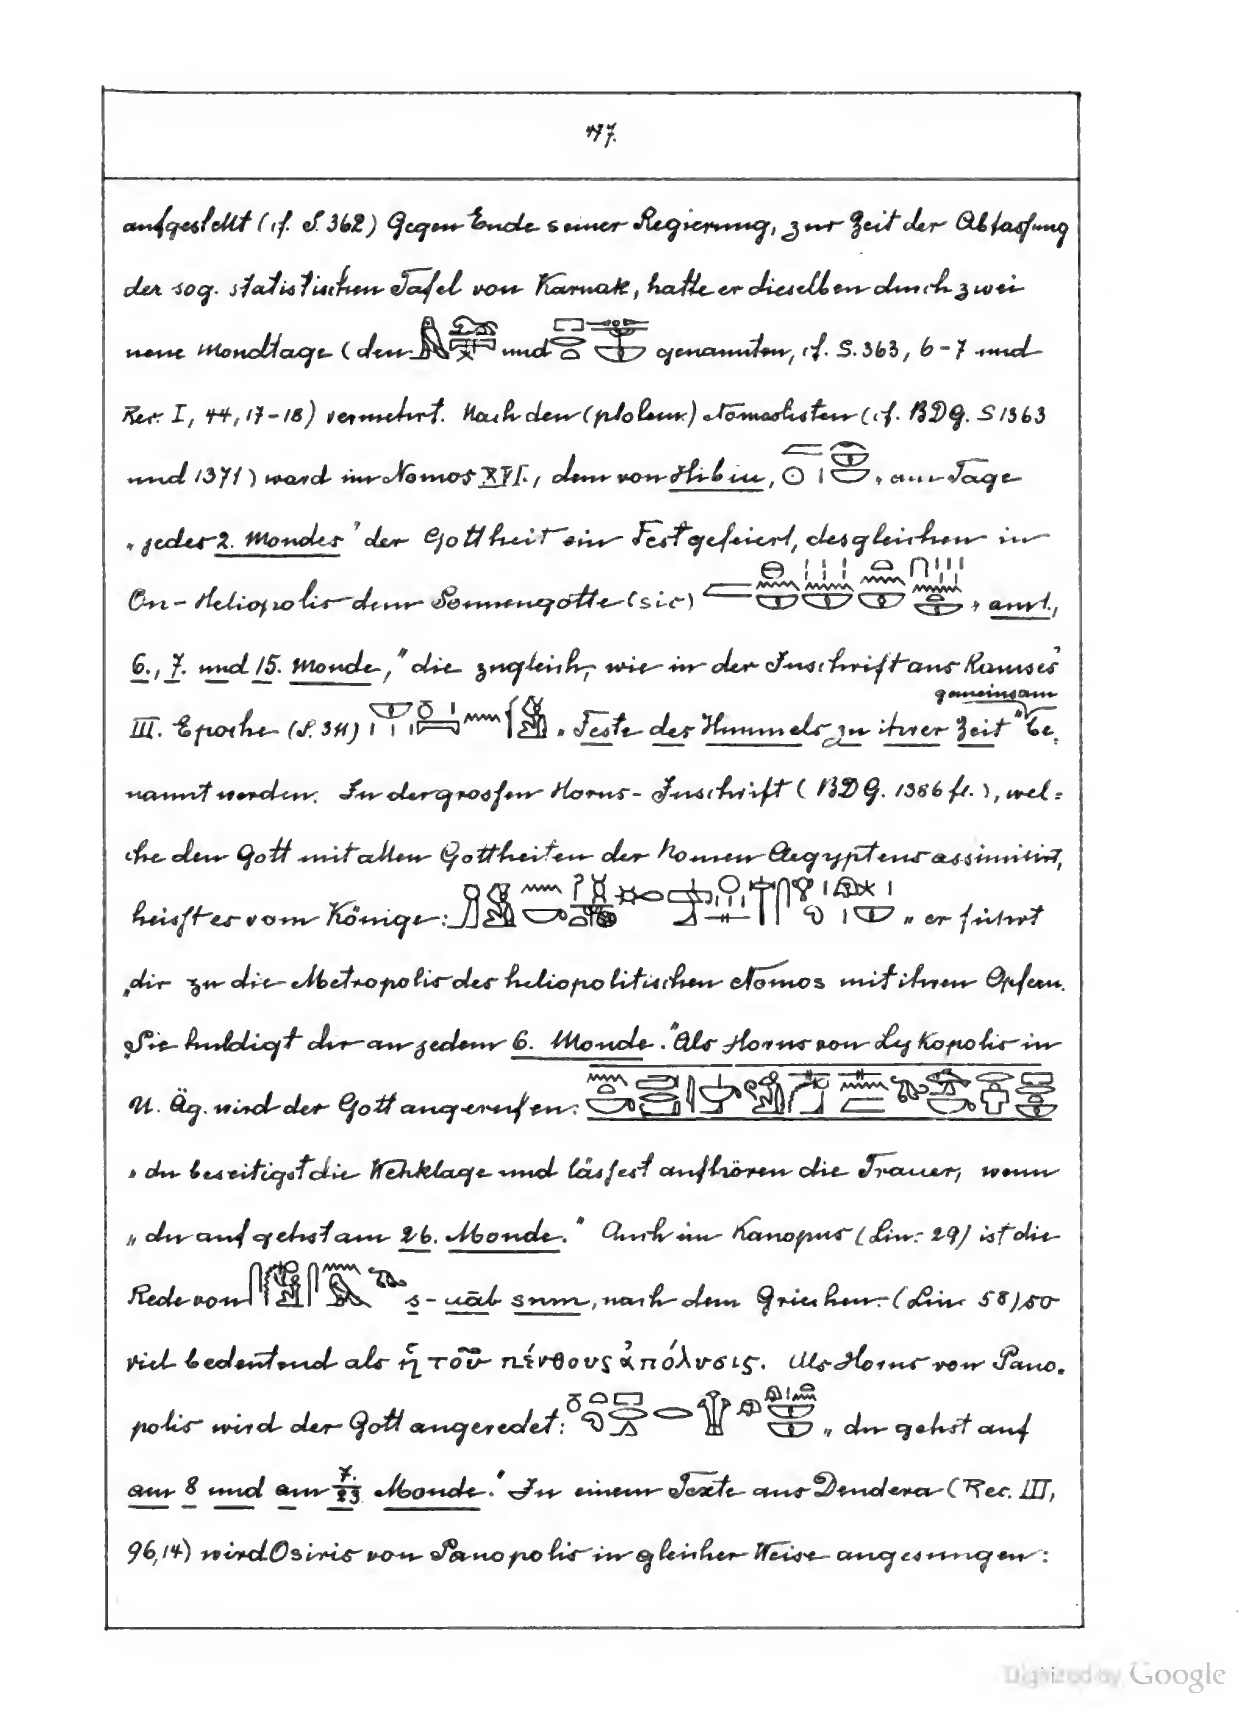 aufgestellt (cf. S. 362) Gegen Ende seiner Regierung, zur Zeit der Abfassung
der sog. statistischen Tafel von Karnak, hatte er dieselben durch zwei
neue Mondtage (den und genannten, cf. S. 363, 6-7 und
Rec. I, 44, 17-18) vermehrt. Nach den (ptolem.) Nomoslisten (cf. BDG. S 1363
und 1371) ward im Nomos XVI., dem von Hibiu, „ am Tage
„ jedes 2. Mondes" der Gottheit ein Fest gefeiert, desgleichen in
On-Heliopolis dem Sonnengotte (sic) „ am 1.,
6., 7. und 15. Monde," die zugleich, wie in der Inschrift aus Ramses'
gemeinsam
III. Epoche (S. 311) „ Feste des Himmels zu ihrer Zeit" be-
nannt werden. In der grossen Horus-Inschrift (BDG. 1386 fl.), wel-
che den Gott mit allen Gottheiten der Nomen Aegyptens assimilirt,
heisst es vom Könige: „ er führt
„dir zu die Metropolis des heliopolitischen Nomos mit ihren Opfern.
„Sie huldigt dir an jedem 6. Monde." Als Horus von Lykopolis in
U. Äg. wird der Gott angerufen:
„ du beseitigst die Wehklage und lässest aufhören die Trauer, wenn
„ du aufgehst am 26. Monde." Auch im Kanopus (Lin. 29) ist die
Rede von s-uāb snm, nach dem Griechen (Lin. 58) so
viel bedeutend als ἡ τοῦ πένθους ἀπόλυσις. Als Horus von Pano-
polis wird der Gott angeredet: „ du gehst auf
am 8 und am 7./23 Monde." In einem Texte aus Dendera (Rec. III,
96,14) wird Osiris von Panopolis in gleicher Weise angesungen:
Digitized by Google